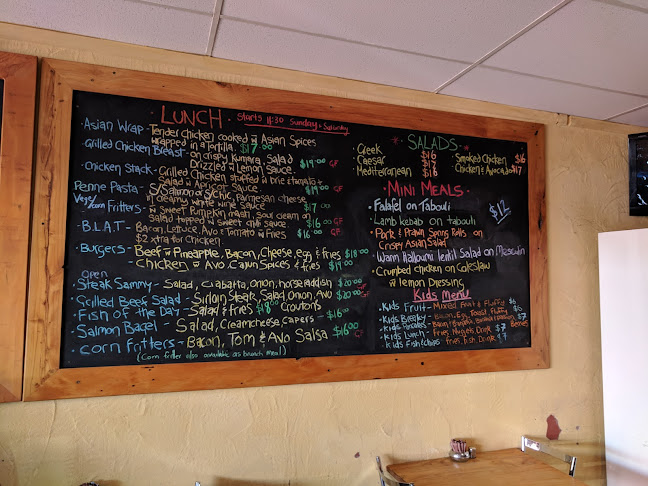 LUNCH - Starts 11:30 Sunday - Saturday
Asian Wrap - Tender Chicken cooked w Asian Spices
wrapped in a tortilla. $17.00
Grilled Chicken Breast - on crispy Kumara, Salad
Drizzled w Lemon Sauce. $19.00 GF
Chicken Stack - Grilled Chicken stuffed w brie & tomato -
Salad w Apricot Sauce. $19.00 GF
Penne Pasta - Salmon or Chic, Parmesan cheese
in creamy white wine Sauce $17
Vege/corn Fritters - w Sweet Pumpkin mash, Sour cream on
Salad topped w Sweet chilli Sauce $16.00 GF
B.L.A.T - Bacon, Lettuce, Avo & Tomato w Fries $16.00 GF
$2 xtra for Chicken
Burgers - Beef w Pineapple, Bacon, Cheese, Egg & fries $18.00
Chicken w Avo Cajun Spices & fries $19.00
Open
Steak Sammy - Salad, Ciabatta, Onion, horseradish $20.00 GF
Grilled Beef Salad - Sirloin Steak, Salad, Onion, Avo $20.00 GF
Fish of the Day - Salad & Fries $18 Croutons
Salmon Bagel - Salad, Creamcheese, Capers - $16.00
Corn Fritters - Bacon, Tom & Avo Salsa $16.00 GF
(Corn fritter also available as brunch meal)
SALADS
Greek $16
Caesar $17
Mediterranean $16
Smoked Chicken $16
Chicken & Avocado $17
MINI MEALS
Falafel on Tabouli
$12
Lamb kebab on tabouli
Pork & Prawn Spring Rolls on
Crispy Asian Salad
Warm Halloumi lentil Salad on Mesculin
Crumbed chicken on Coleslaw
w lemon Dressing
Kids Menu
Kids Fruit - Mixed Fruit & Fluffy $6
Kids Breaky - Bacon, Egg, Toast, Fluffy $6
Kids Pancakes - $7
Berries
Kids Lunch - Fries, Nuggets, Drink $7
Kids Fish & chips - fries, Fish, Drink $7